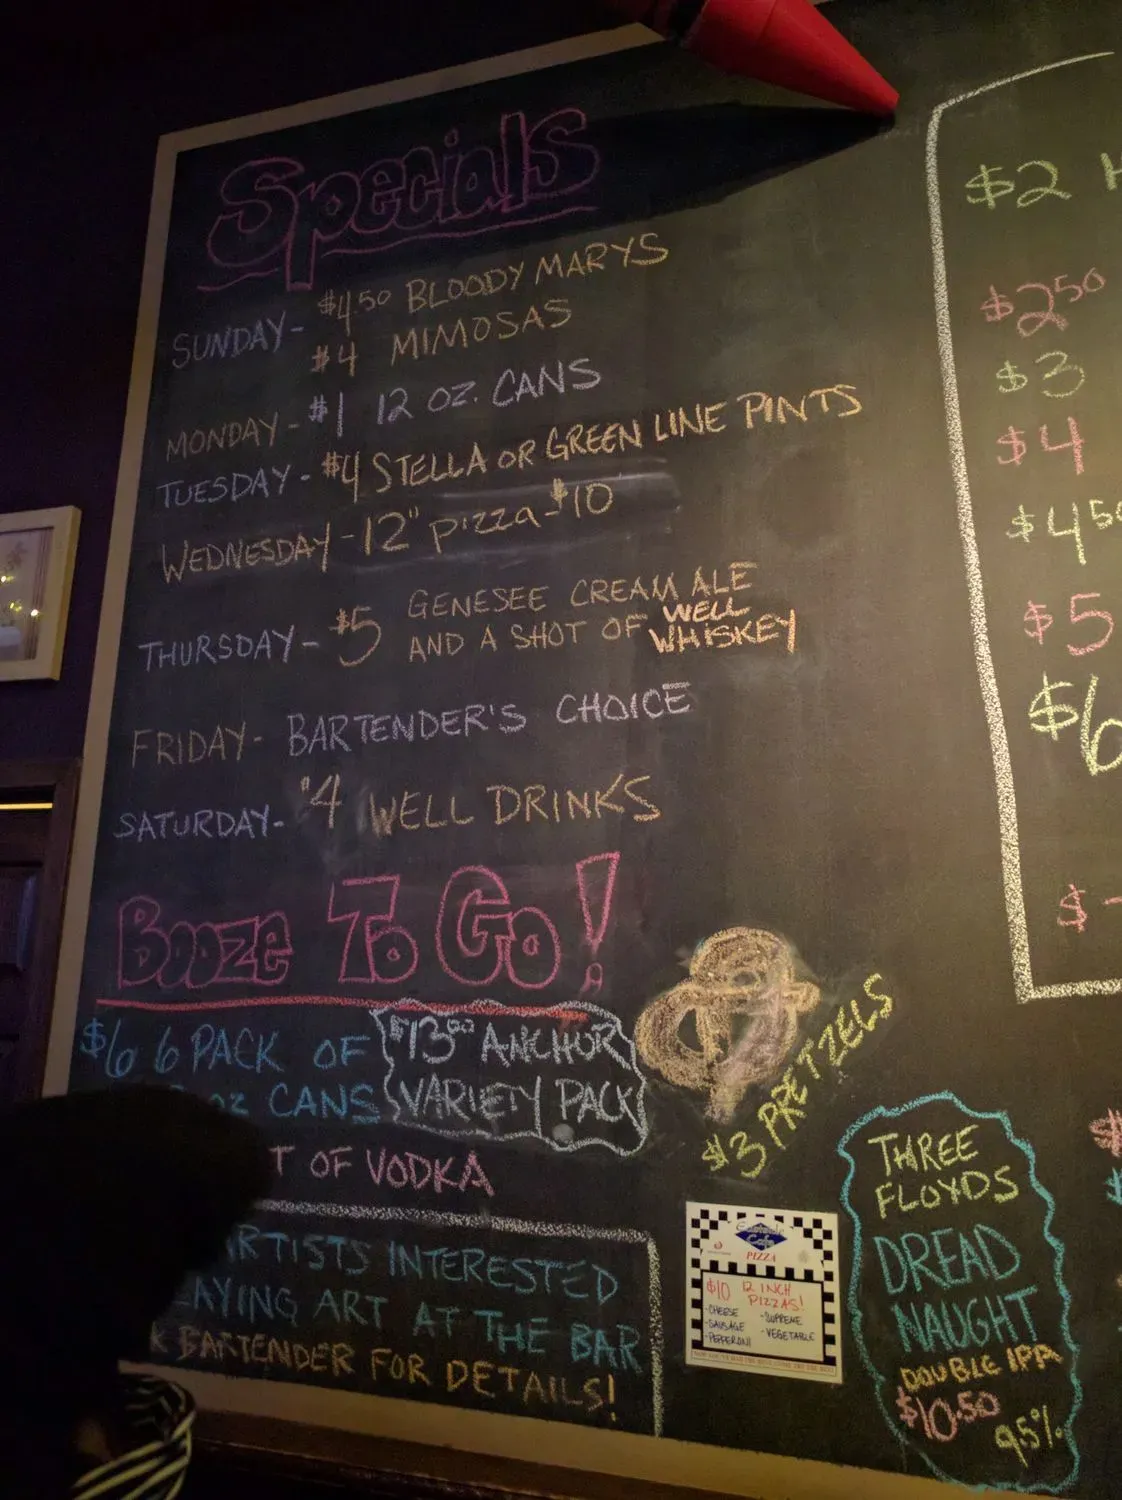 Specials
SUNDAY- $4.50 BLOODY MARYS
$4 MIMOSAS
MONDAY- $1 12 OZ. CANS
TUESDAY- $4 STELLA OR GREEN LINE PINTS
WEDNESDAY- 12" pizza $10
THURSDAY- $5 GENESEE CREAM ALE
AND A SHOT OF WELL
WHISKEY
FRIDAY- BARTENDER'S CHOICE
SATURDAY- $4 WELL DRINKS
Booze To Go!
$6 6 PACK OF
OZ CANS
$13.00 ANCHOR
VARIETY PACK
T OF VODKA
RTISTS INTERESTED
AYING ART AT THE BAR
K BARTENDER FOR DETAILS!
$3 PRETZELS
PIZZA
$10 12 INCH
PIZZAS!
-CHEESE -SUPREME
-SAUSAGE -VEGETABLE
-PEPPERONI
THREE
FLOYDS
DREAD
NAUGHT
DOUBLE IPA
$10.50
9.5%
$2 H
$2.50
$3
$4
$4.50
$5
$6
$